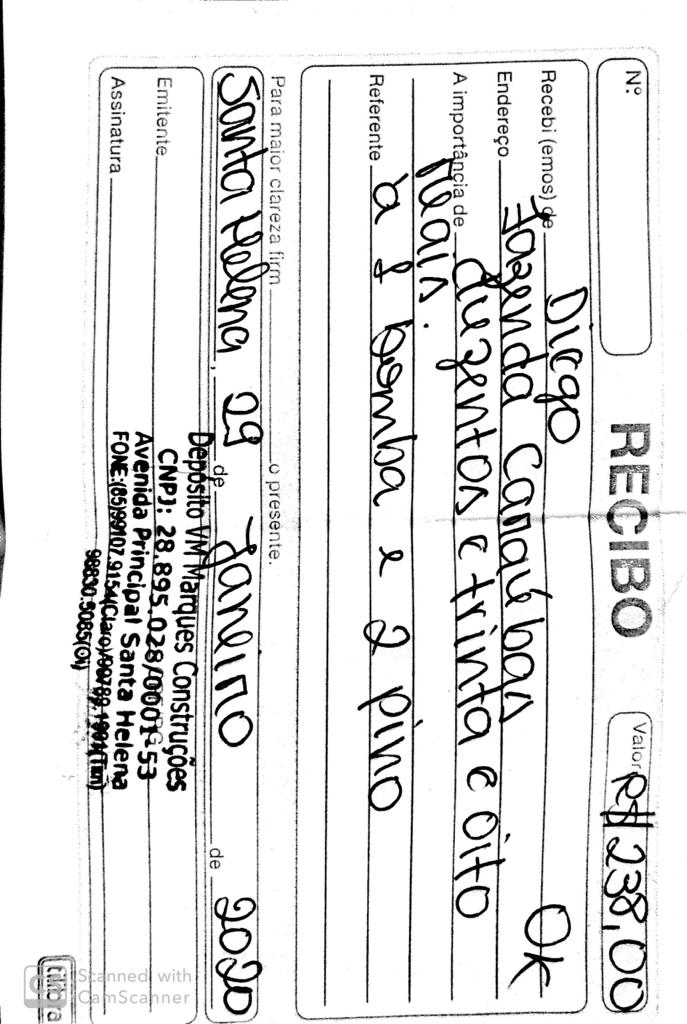 Nº
RECIBO
Valor R$ 238,00
Recebi (emos) de Diego
OK
Endereço Fazenda Carqué bas
A importância de duzentos e trinta e oito
reais.
Referente a 1 bomba e 2 pino
Para maior clareza firm o presente.
Santa Helena, 29 de Janeiro de 2020
Emitente
Assinatura
Depósito VM Marques Construções
CNPJ: 28.895.028/0001-53
Avenida Principal Santa Helena
FONE:(85)99107.9154(Claro)/99789.1901(Tim)
98830.5085(Oi)
Scanned with
CamScanner